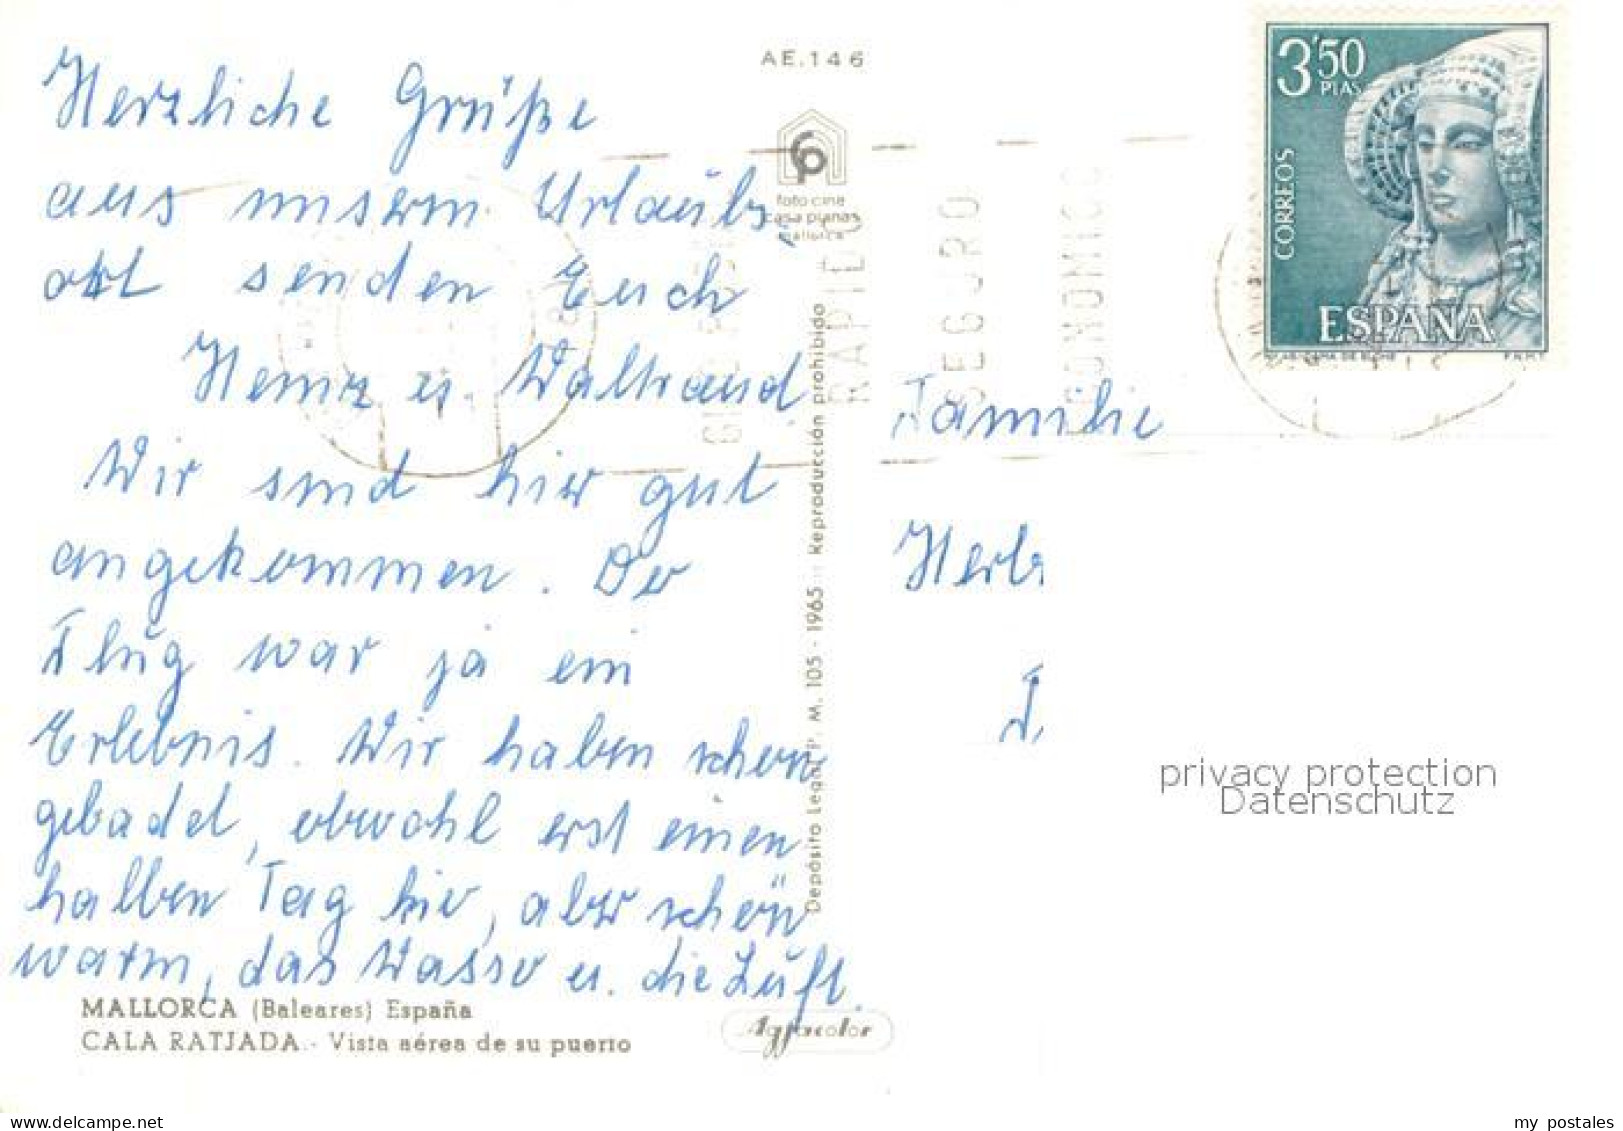 AE.146
3'50
PTAS
CORREOS
ESPAÑA
DAMA DE ELCHE
F.N.M.T.
foto cine
casa planas
mallorca
RAPIDO
SEGURO
Herzliche Grüße
aus unserm Urlaubs-
ort senden Euch
Heinz u. Waltraud
Wir sind hier gut
angekommen. Der
Flug war ja ein
Erlebnis. Wir haben schon
gebadet, obwohl erst einen
halben Tag hier, aber schön
warm, das Wasser u. die Luft.
Familie
Herb
Depósito Legal P. M. 105 - 1965 :: Reproducción prohibido
MALLORCA (Baleares) España
CALA RATJADA.- Vista aérea de su puerto
Agfacolor
privacy protection
Datenschutz
my postales